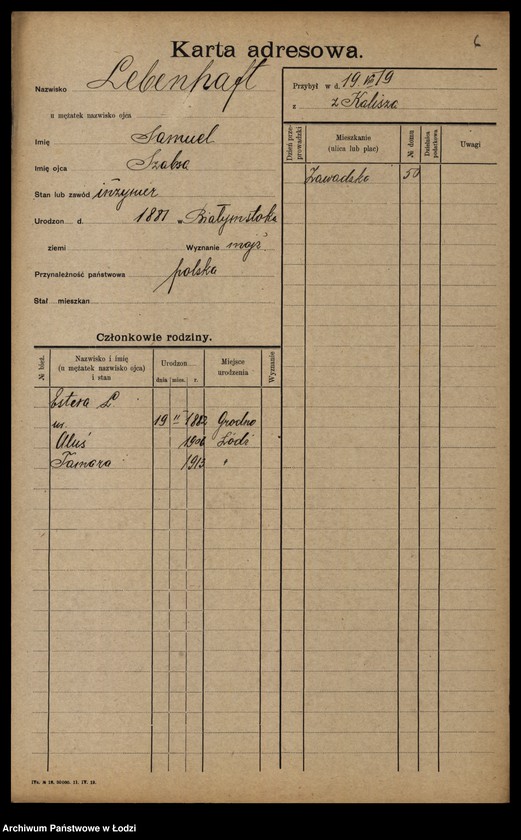 6
Karta adresowa.
Nazwisko Lebenhaft
u mężatek nazwisko ojca
Imię Samuel
Imię ojca Szabsa
Stan lub zawód inżynier
Urodzon d. 1881 w Białymstoku
ziemi Wyznanie mojż
Przynależność państwowa polska
Stał mieszkan
Przybył w d. 19 VII 19
z z Kalisza
Dzień przeprowadzki
Mieszkanie (ulica lub plac)
№ domu
Dzielnica podatkowa
Uwagi
Zawadzka 50
Członkowie rodziny.
№ bież.
Nazwisko i imię
(u mężatek nazwisko ojca)
i stan
Urodzon
dnia mies. r.
Miejsce urodzenia
Wyznanie
Estera L
19 II 1882 Grodno
Aluś 1906 Łódź
Tamara 1913 "
Archiwum Państwowe w Łodzi